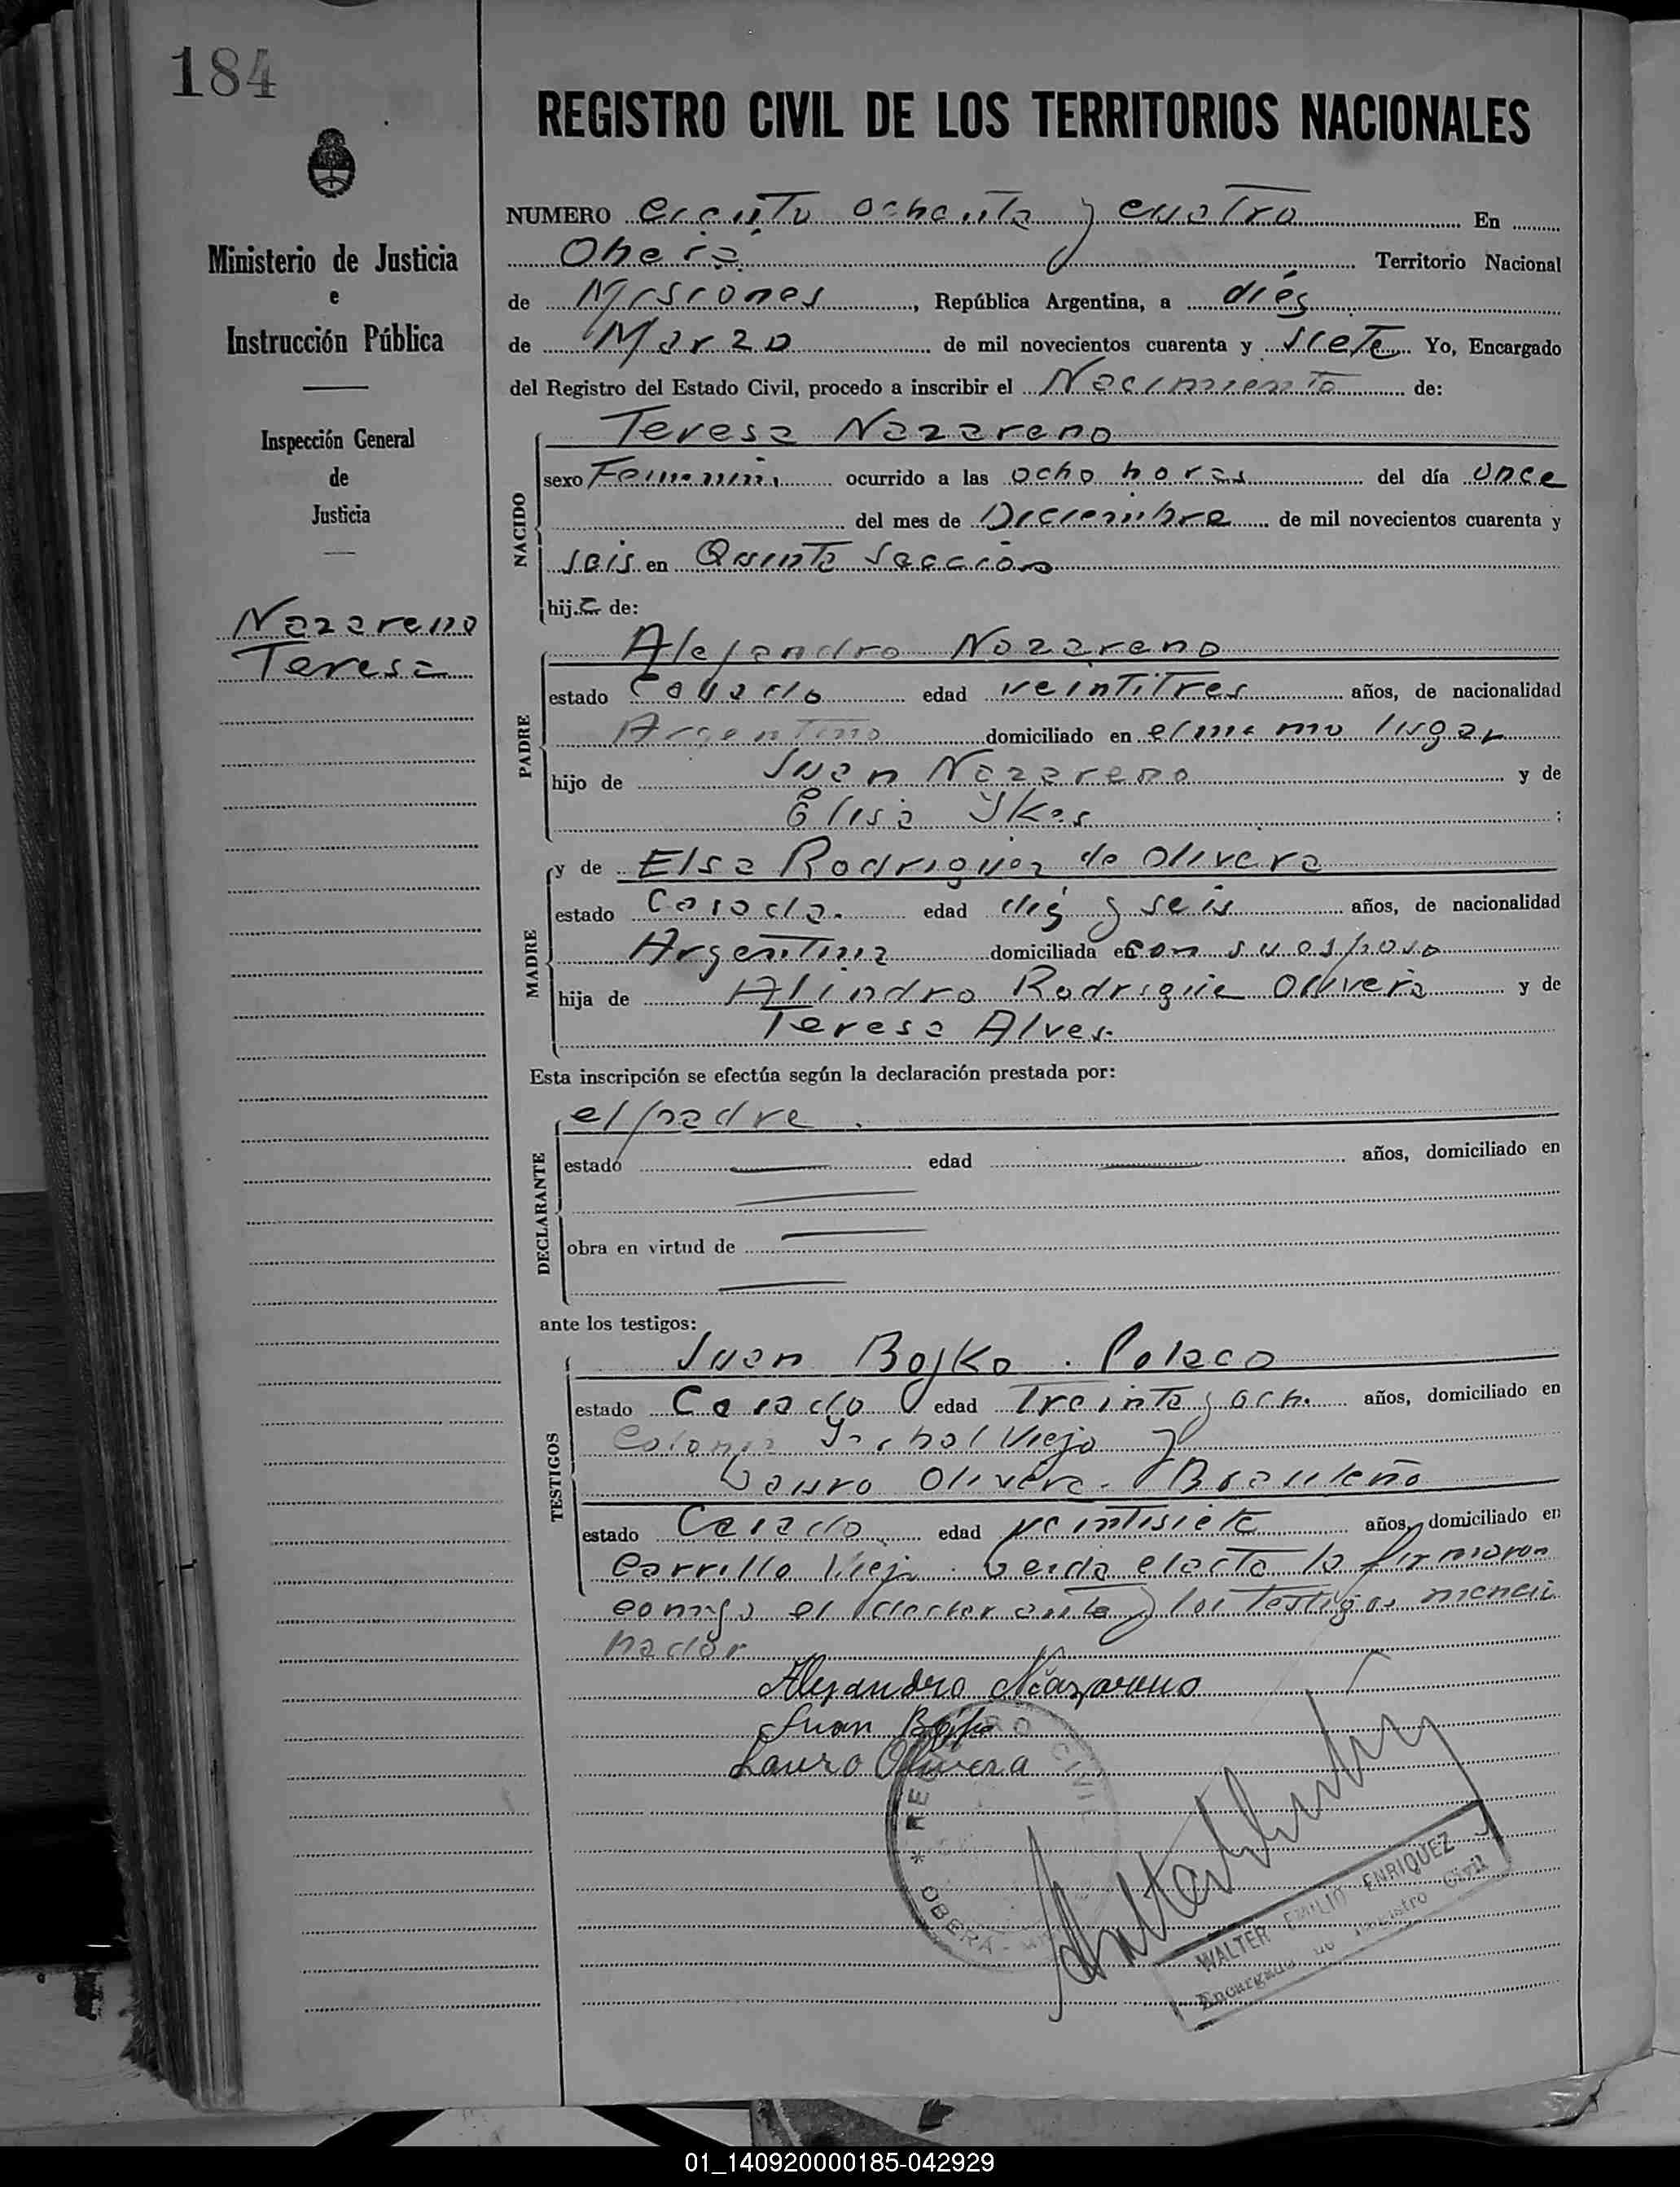 184
REGISTRO CIVIL DE LOS TERRITORIOS NACIONALES
Ministerio de Justicia
e
Instrucción Pública
Inspección General
de
Justicia
Nazareno
Teresa
NUMERO ciento ochenta y cuatro En
Oberá Territorio Nacional
de Misiones, República Argentina, a diés
de Marzo de mil novecientos cuarenta y siete Yo, Encargado
del Registro del Estado Civil, procedo a inscribir el Nacimiento de:
NACIDO
Teresa Nazareno
sexo Femenin. ocurrido a las ocho horas del día once
del mes de Diciembre de mil novecientos cuarenta y
seis en Quinta Sección
hija de:
PADRE
Alejandro Nazareno
estado Casado edad veintitres años, de nacionalidad
Argentino domiciliado en el mismo lugar
hijo de Juan Nazareno y de
Elisa Ykes;
MADRE
y de Elsa Rodriguez de Olivera
estado Casada. edad diés y seis años, de nacionalidad
Argentina domiciliada en con su esposo
hija de Alindro Rodrigue Olivera y de
Teresa Alves.
Esta inscripción se efectúa según la declaración prestada por:
DECLARANTE
el padre.
estado edad años, domiciliado en
obra en virtud de
ante los testigos:
TESTIGOS
Juan Bojko. Polaco
estado Casado edad Treinta y och. años, domiciliado en
Colonia Viejo y
Lauro Olivera. Brasileño
estado Casado edad veintisiete años, domiciliado en
Carrillo Viejo. Leida el acta la firmaron
comigo el declarante y los testigos mencio
nados
Alejandro Nazareno
Juan Bojko
Lauro Olivera
* REGISTRO CIVIL * OBERÁ -
WALTER EMILIO ENRIQUEZ
Encargado de Registro Civil
01_140920000185-042929